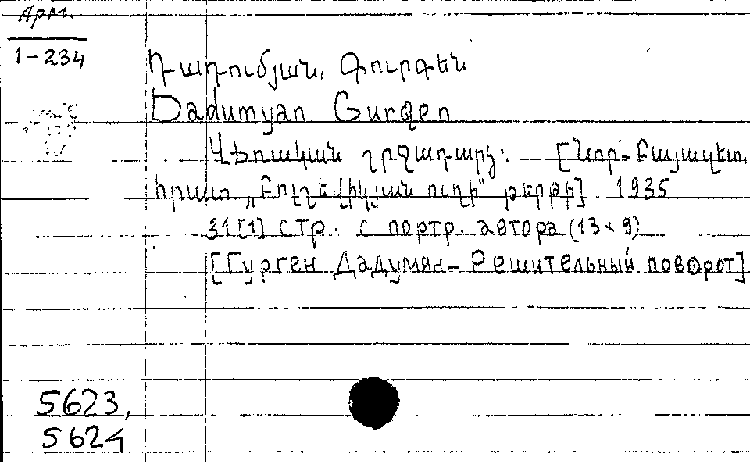 Арм.
1-234
Դադումյան, Գուրգեն
Dadumyan Gurgen
Վճռական շրջադարձ: [Նոր-Բայազետ,
հրատ „Բոլշևիկյան ուղի" թերթի] 1935
31[1] стр. с портр. автора (13×9)
[Гурген Дадумян - Решительный поворот]
5623,
5624